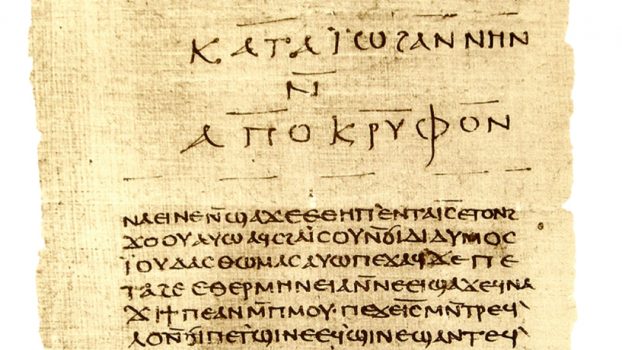 ⲕⲁⲧⲁ ⲓ̈ⲱϩⲁⲛⲛⲏⲛ
ⲛ̄
ⲁⲡⲟⲕⲣⲩⲫⲟⲛ
ⲛⲁⲉⲓⲛⲉⲛ̄ϣⲁϫⲉⲉⲑⲏⲡⲉⲛⲧⲁⲓ̅ⲥ̅ⲉⲧⲟⲛϩ
ϫⲟⲟⲩⲁⲩⲱⲁϥⲥϩⲁⲓ̈ⲥⲟⲩⲛ̄ϭⲓⲇⲓⲇⲩⲙⲟⲥ
ⲓ̈ⲟⲩⲇⲁⲥⲑⲱⲙⲁⲥⲁⲩⲱⲡⲉϫⲁϥϫⲉⲡⲉ
ⲧⲁϩⲉⲉⲑⲉⲣⲙⲏⲛⲉⲓⲁⲛ̄ⲛⲉⲉⲓϣⲁϫⲉϥⲛⲁ
ϫⲓϯⲡⲉⲁⲛⲙ̄ⲡⲙⲟⲩ·ⲡⲉϫⲉⲓ̅ⲥ̅ⲙⲛ̄ⲧⲣⲉϥ
ⲗⲟⲛ̄ϭⲓⲡⲉⲧϣⲓⲛⲉⲉϥϣⲓⲛⲉϣⲁⲛⲧⲉϥ